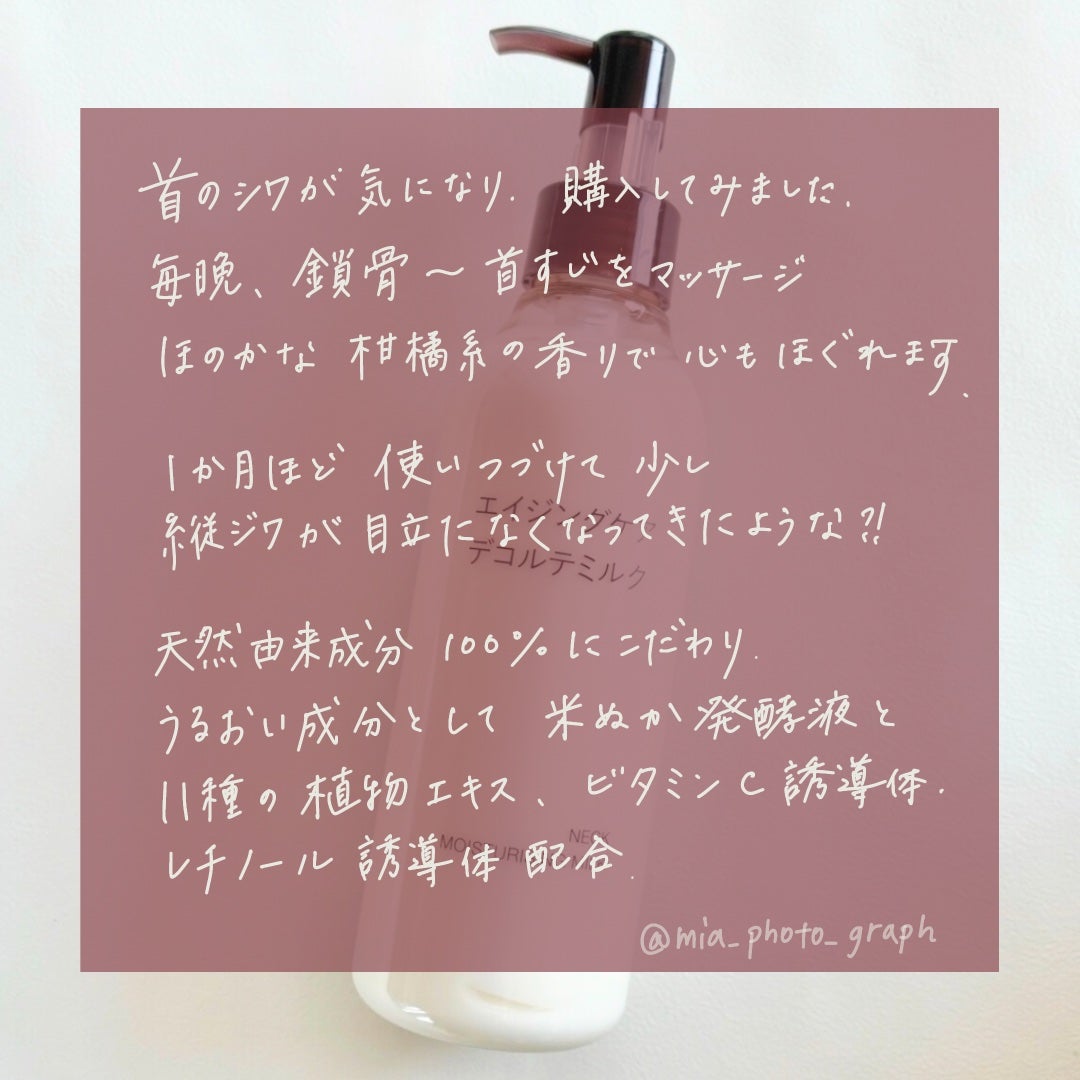 首のシワが気になり. 購入してみました.
毎晩、鎖骨〜首すじをマッサージ
ほのかな 柑橘系の香りで 心もほぐれます.
1か月ほど 使いつづけて 少し
縦ジワが目立たなくなってきたような?!
エイジングケア
デコルテミルク
天然由来成分 100%にこだわり.
うるおい成分として 米ぬか発酵液と
11種の植物エキス、ビタミンC誘導体.
レチノール誘導体配合.
NECK
@mia_photo_graph